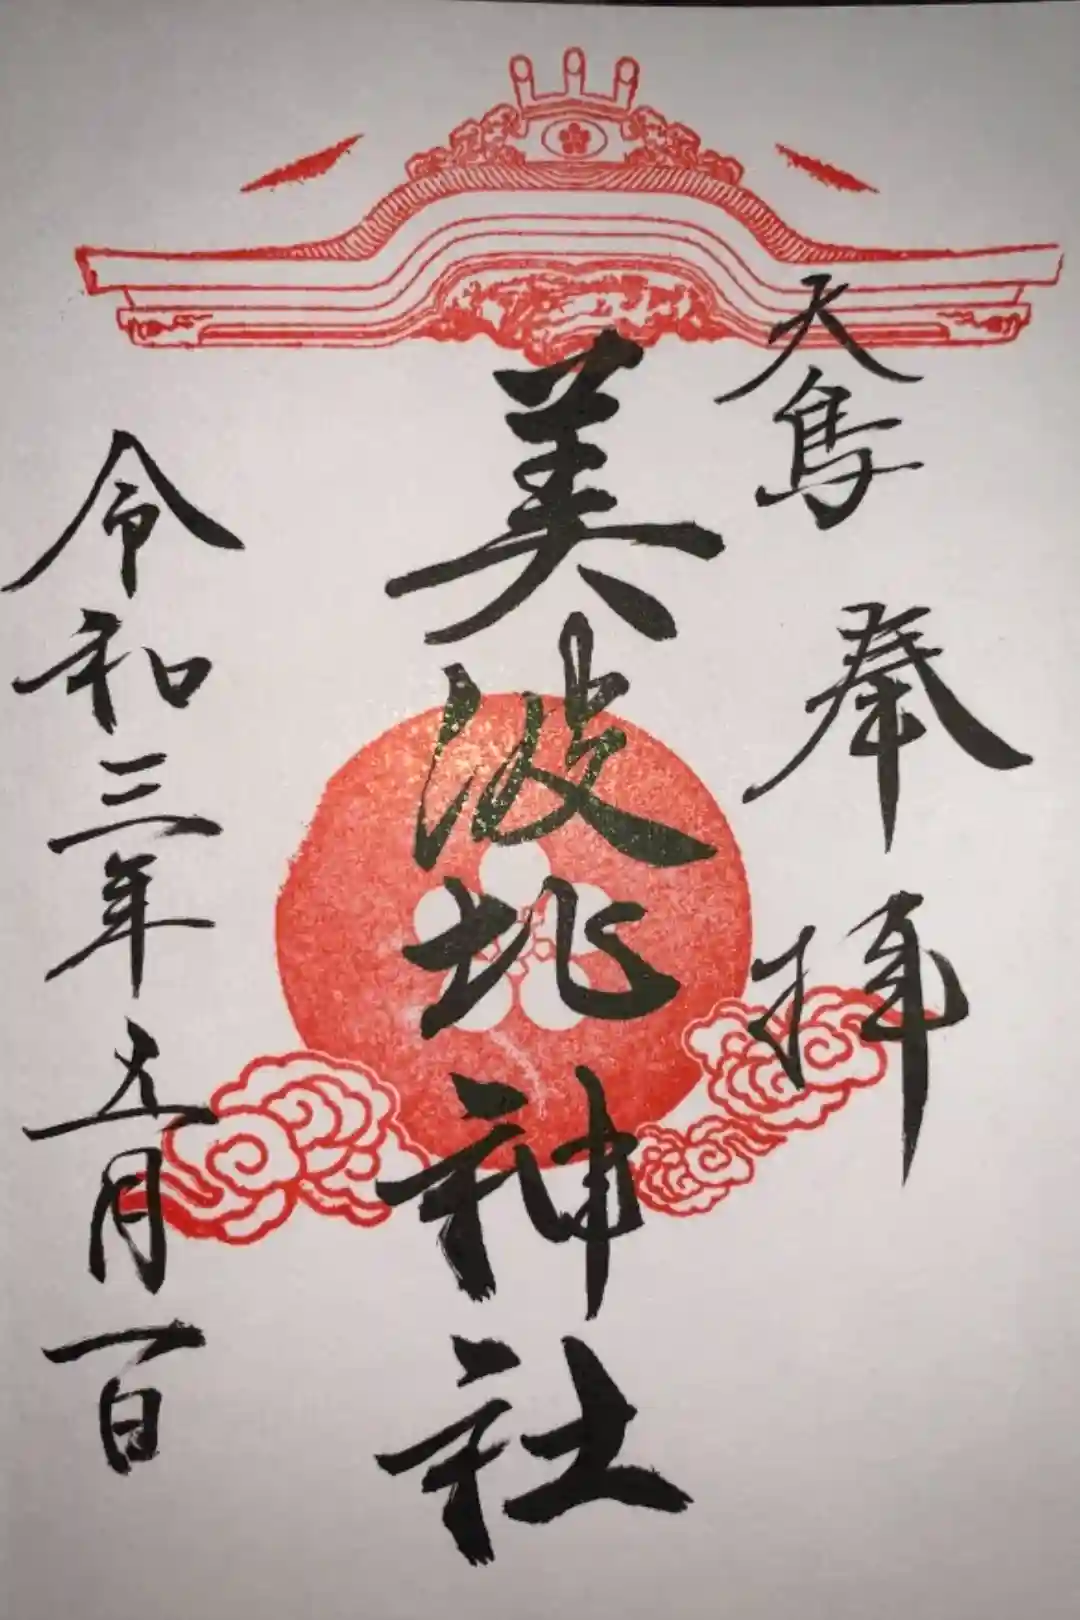 大鳥 奉拝
美波比神社
令和三年五月一日